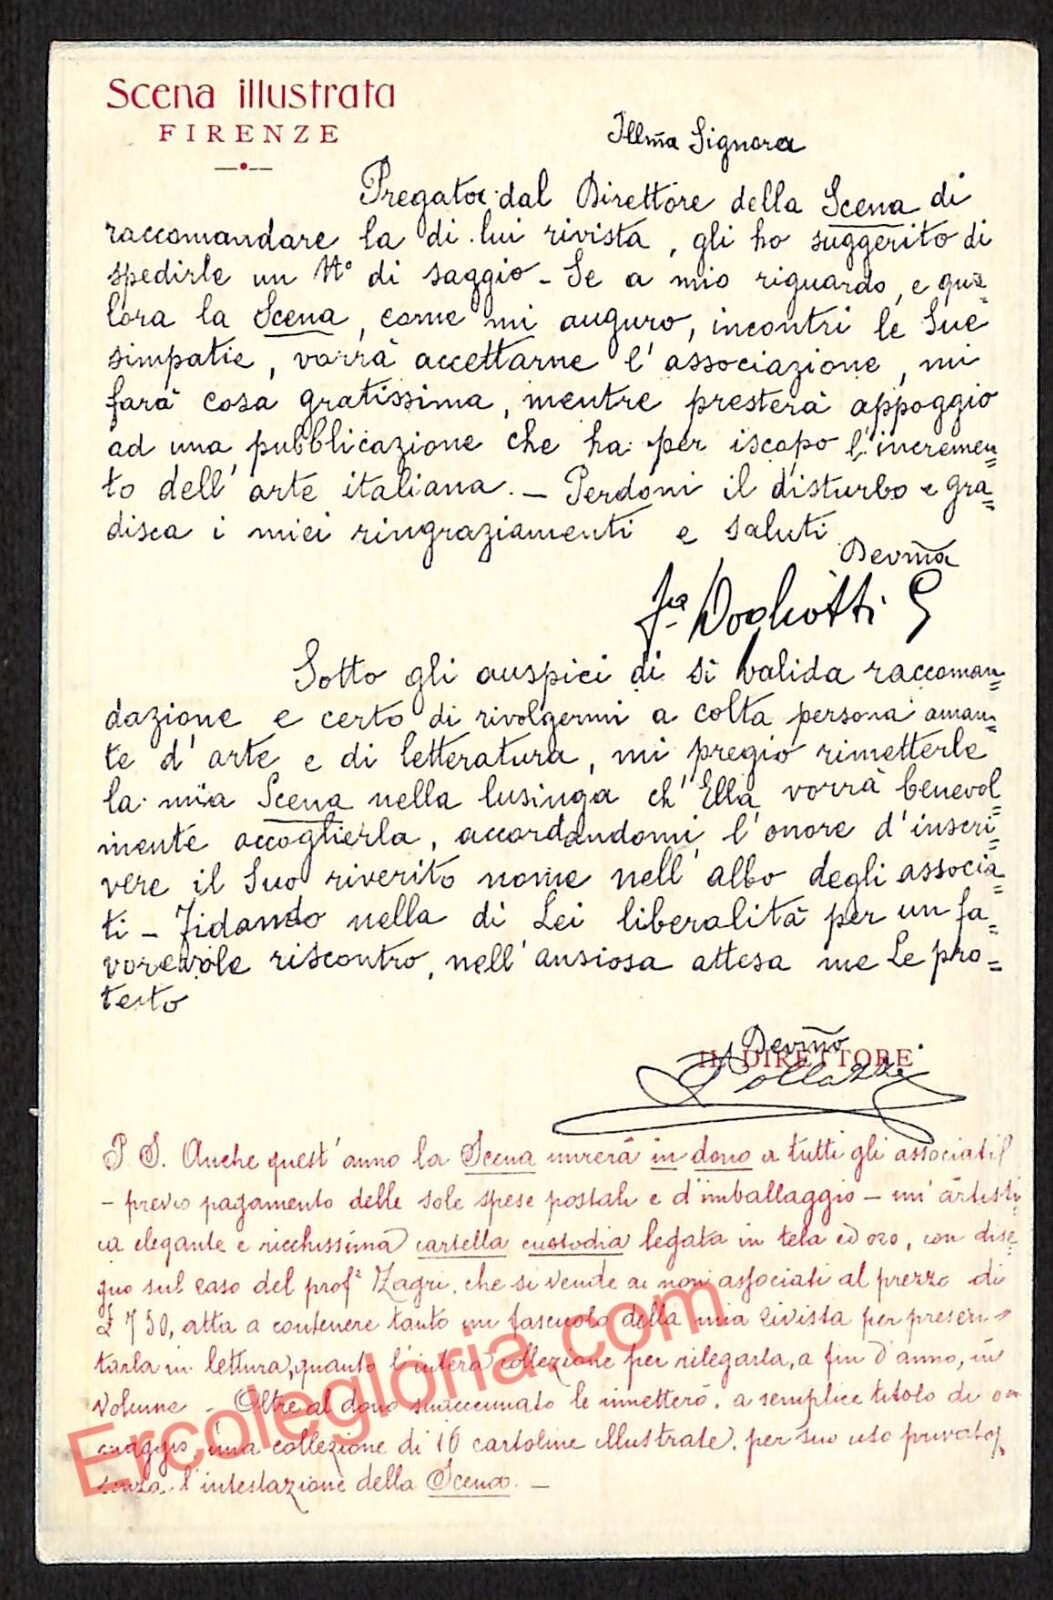 Scena illustrata
FIRENZE
Illma Signora
Pregata dal Direttore della Scena di
raccomandare la di lui rivista, gli ho suggerito di
spedirle un N° di saggio - Se a mio riguardo, e qua=
lora la Scena, come mi auguro, incontri le Sue
simpatie, vorrà accettarne l'associazione, mi
farà cosa gratissima, mentre presterà appoggio
ad una pubblicazione che ha per iscapo l'incremen=
to dell'arte italiana. - Perdoni il disturbo e gra=
disca i miei ringraziamenti e saluti
Devma
Dogliotti G
Sotto gli auspici di sì valida raccoman=
dazione e certo di rivolgermi a colta persona aman=
te d'arte e di letteratura, mi pregio rimetterle
la mia Scena nella lusinga ch'Ella vorrà benevol=
mente accoglierla, accordandomi l'onore d'inscri=
vere il Suo riverito nome nell'albo degli associa=
ti - Fidando nella di Lei liberalità per un fa=
vorevole riscontro, nell'ansiosa attesa me Le pro=
testo
Devmo
IL DIRETTORE
Pollazzi
P S. Anche quest'anno la Scena invierà in dono a tutti gli associati
- previo pagamento delle sole spese postali e d'imballaggio - un'artisti
ca elegante e ricchissima cartella custodia legata in tela ed oro, con dise=
gno sul caso del prof. che si vende ai non associati al prezzo di
£ 7 50, atta a contenere tanto un fascicolo della mia rivista per presen=
tarla in lettura, quanto l'intera collezione per rilegarla, a fin d'anno, in
volume - Oltre al dono suaccennato le rimetterò, a semplice titolo di o
maggio una collezione di 10 cartoline illustrate, per suo uso privato,
senza l'intestazione della Scena. -
Ercolegloria.com